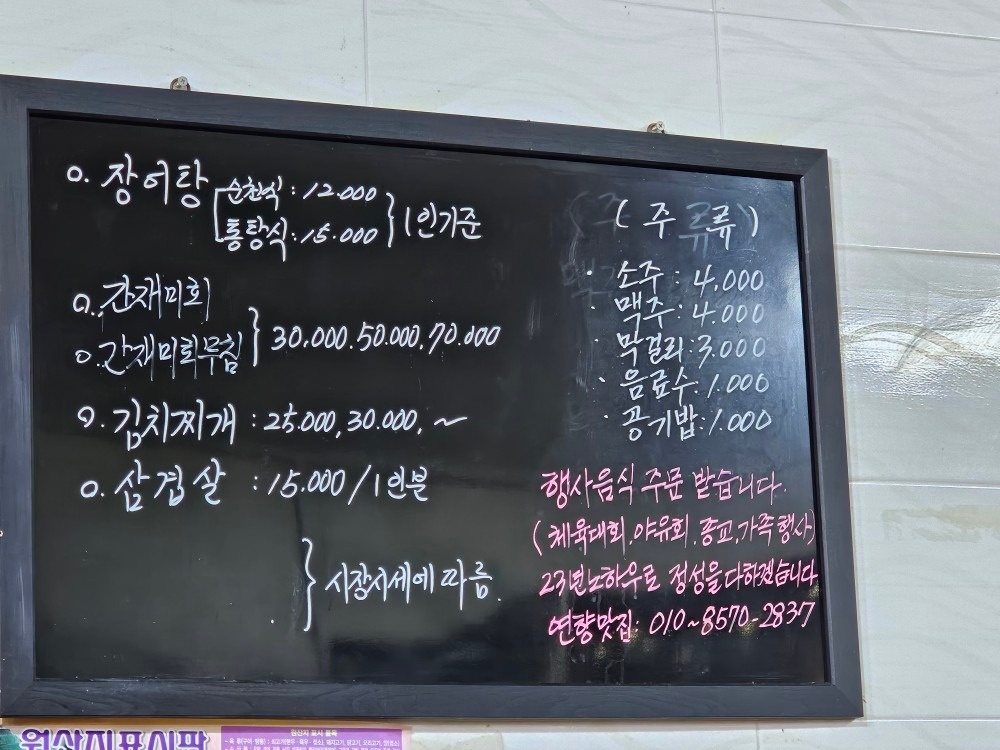 o. 장어탕
순천식 : 12.000
통탕식 : 15.000
} 1인기준
o. 간재미회
o. 간재미회무침
} 30.000.50.000,70.000
o. 김치찌개 : 25.000, 30.000, ~
o. 삼겹살 : 15.000 / 1인분
} 시장시세에 따름.
( 주 류 )
· 소주 : 4,000
· 맥주 : 4.000
· 막걸리 : 3.000
· 음료수. 1.000
· 공기밥 : 1.000
행사음식 주문 받습니다.
(체육대회.야유회.종교.가족행사)
23년노하우로 정성을다하겠습니다
연향맛집: 010~8570-2837
원산지표시판
원산지 표시 품목